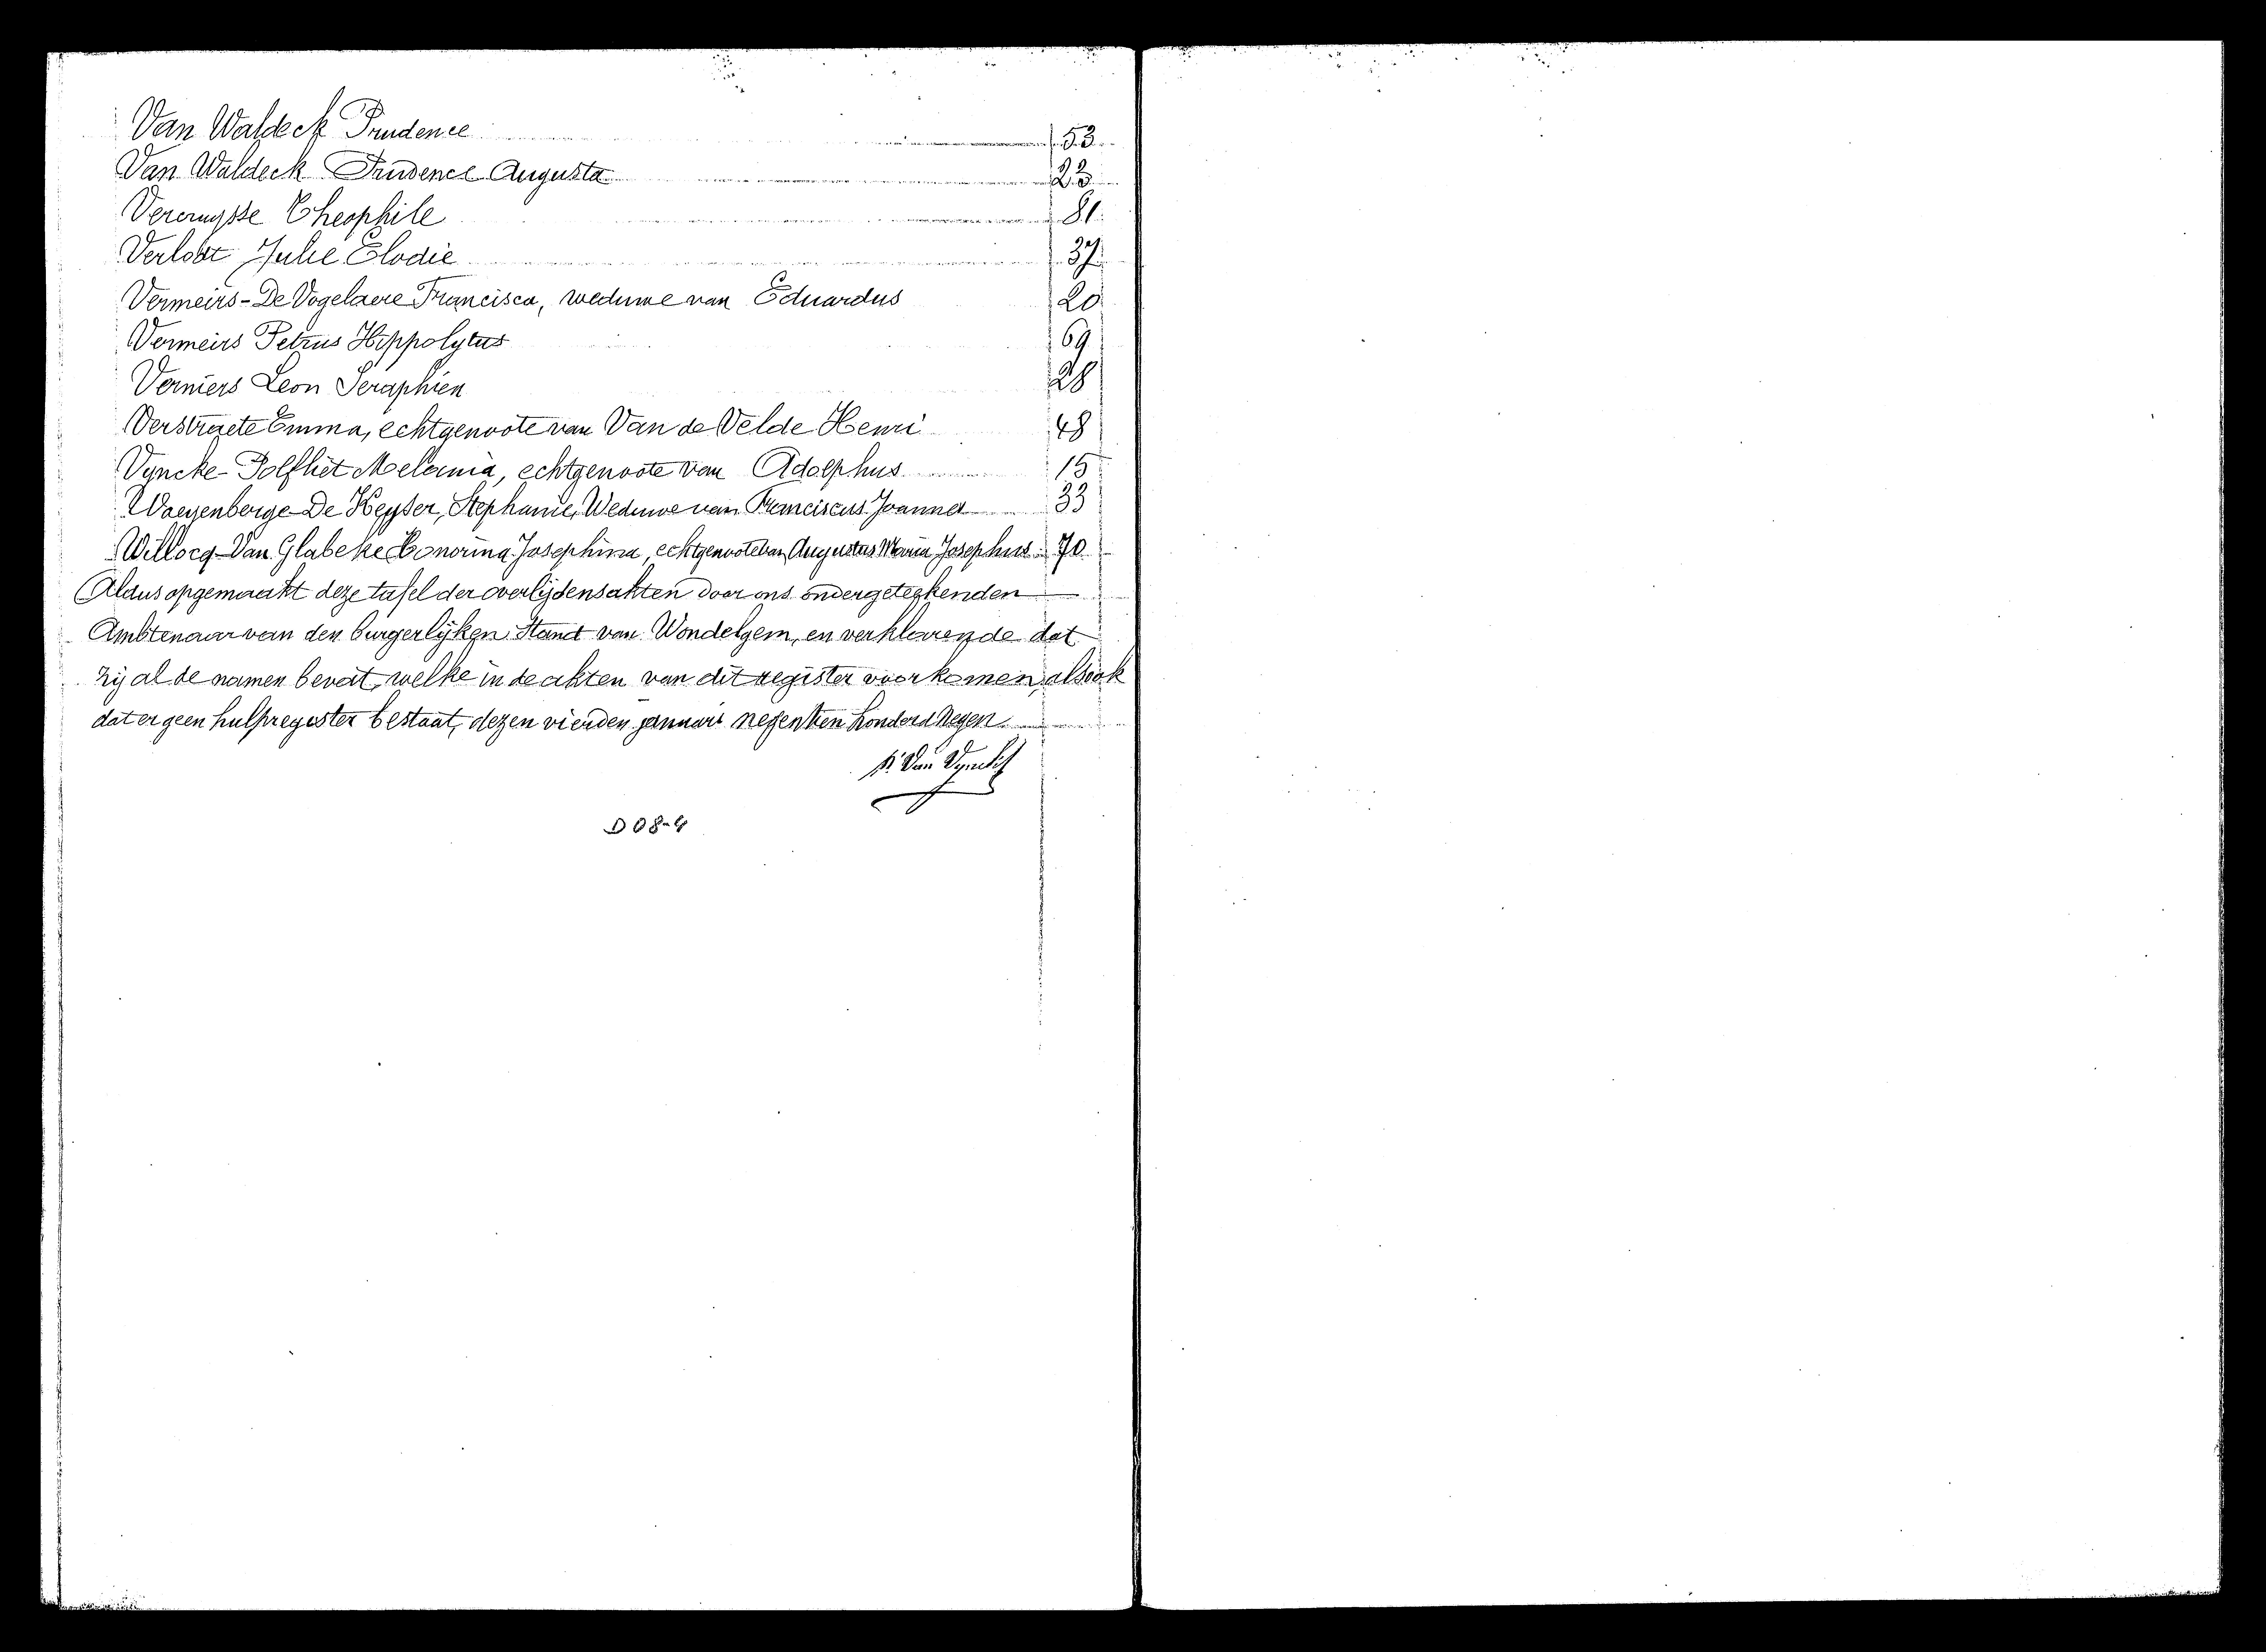 Van Waldeck Prudence 53
Van Waldeck Prudence Augusta 23
Vercruysse Theophile 81
Verlobt Julie Elodie 37
Vermeirs-De Vogelaere Francisca, weduwe van Eduardus 20
Vermeirs Petrus Hippolytus 69
Verniers Leon Seraphien 28
Verstraete Emma, echtgenoote van Van de Velde Henri 48
Vyncke-Polfliet Melania, echtgenoote van Adolphus 15
Waeyenberge-De Keyser, Stephanie, Weduwe van Franciscus Joannes 33
Willocq-Van Glabeke Honorina Josephina, echtgenoote van Augustus Maria Josephus 70
Aldus opgemaakt deze tafel der overlijdensakten door ons ondergeteekenden
Ambtenaar van den burgerlijken Stand van Wondelgem, en verklarende dat
zij al de namen bevat, welke in de akten van dit register voorkomen, alsook
dat er geen hulpregister bestaat, dezen vierden januari negentien honderd negen.
Van
D 08-4